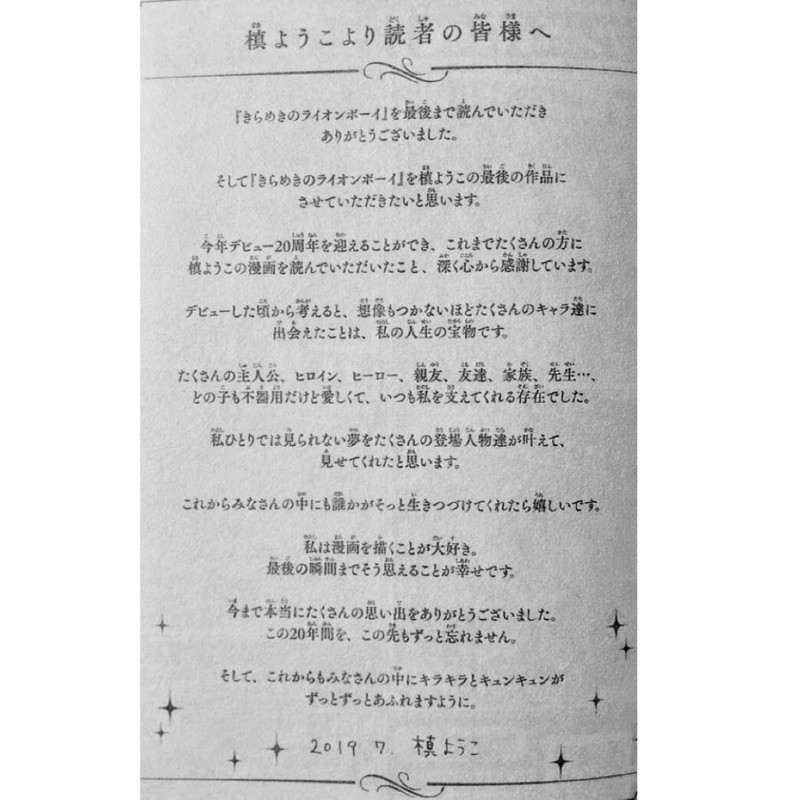 槙ようこより読者の皆様へ
『きらめきのライオンボーイ』を最後まで読んでいただき
ありがとうございました。
そして『きらめきのライオンボーイ』を槙ようこの最後の作品に
させていただきたいと思います。
今年デビュー20周年を迎えることができ、これまでたくさんの方に
槙ようこの漫画を読んでいただいたこと、深く心から感謝しています。
デビューした頃から考えると、想像もつかないほどたくさんのキャラ達に
出会えたことは、私の人生の宝物です。
たくさんの主人公、ヒロイン、ヒーロー、親友、友達、家族、先生…、
どの子も不器用だけど愛しくて、いつも私を支えてくれる存在でした。
私ひとりでは見られない夢をたくさんの登場人物達が叶えて、
見せてくれたと思います。
これからみなさんの中にも誰かがそっと生きつづけてくれたら嬉しいです。
私は漫画を描くことが大好き。
最後の瞬間までそう思えることが幸せです。
今まで本当にたくさんの思い出をありがとうございました。
この20年間を、この先もずっと忘れません。
そして、これからもみなさんの中にキラキラとキュンキュンが
ずっとずっとあふれますように。
2019 7. 槙ようこ